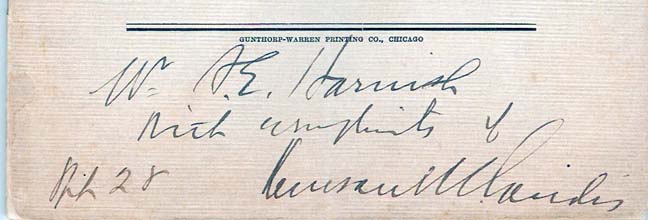 GUNTHORP-WARREN PRINTING CO., CHICAGO
Mr. S. E. Harnish
With compliments of
Landis
28